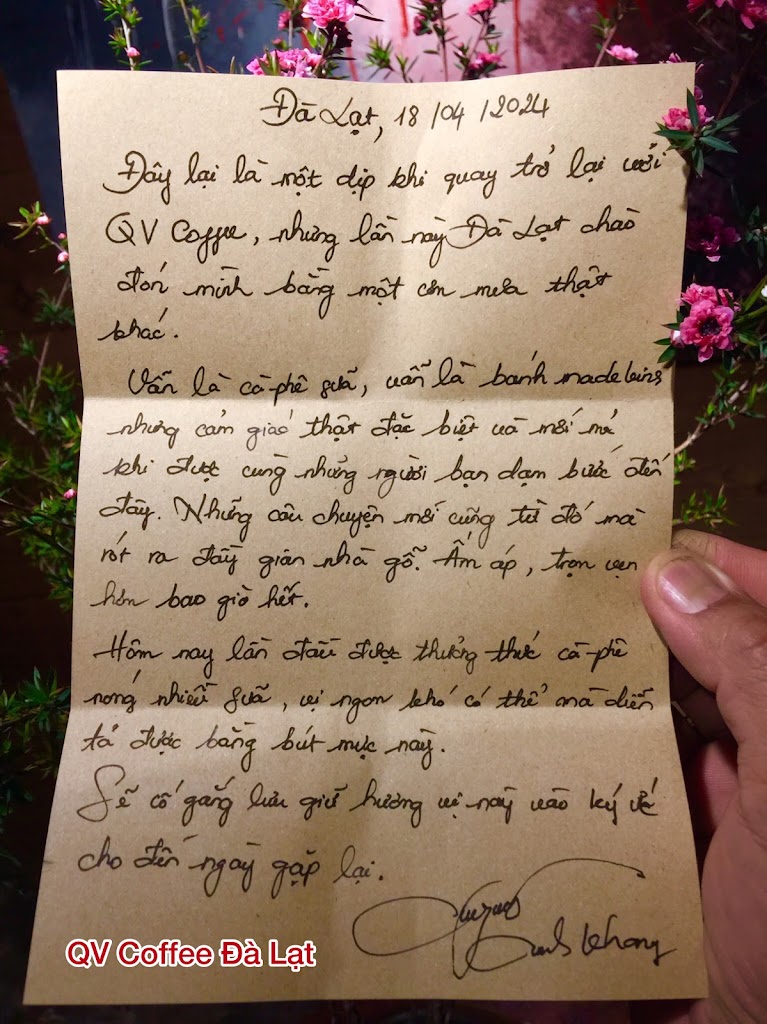 Đà Lạt, 18/04/2024
Đây lại là một dịp khi quay trở lại với
QV Coffee, nhưng lần này Đà Lạt chào
đón mình bằng một cơn mưa thật
khác.
Vẫn là cà-phê sữa, vẫn là bánh madeleins
nhưng cảm giác thật đặc biệt và mới mẻ
khi được cùng những người bạn dạm bước đến
đây. Những câu chuyện mới cũng từ đó mà
rót ra đầy gian nhà gỗ. Ấm áp, trọn vẹn
hơn bao giờ hết.
Hôm nay lần đầu được thưởng thức cà-phê
nóng nhiều sữa, vị ngon khó có thể mà diễn
tả được bằng bút mực này.
Sẽ cố gắng lưu giữ hương vị này vào ký ức
cho đến ngày gặp lại.
Khang
QV Coffee Đà Lạt